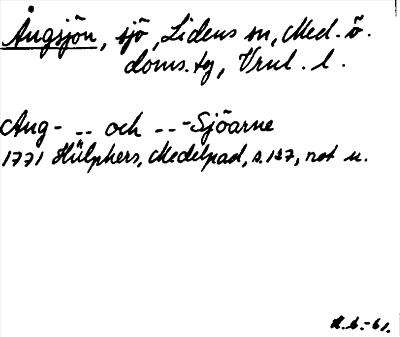 Ångsjön, sjö, Lidens sn, Med. ö.
doms.tg, Vrnl. l.
Ang- -- och ---Sjöarne
1771 Hülphers, Medelpad, s. 127, not u.